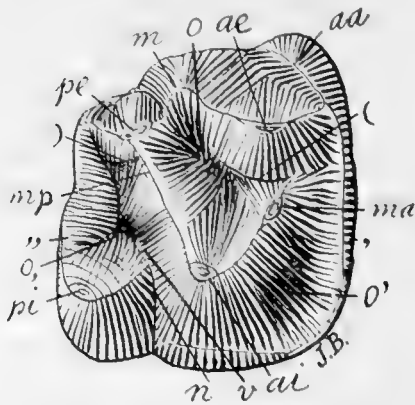 m o ae aa
pe
) (
mp ma
,, ,
o, o'
pi
n v ai J.B.